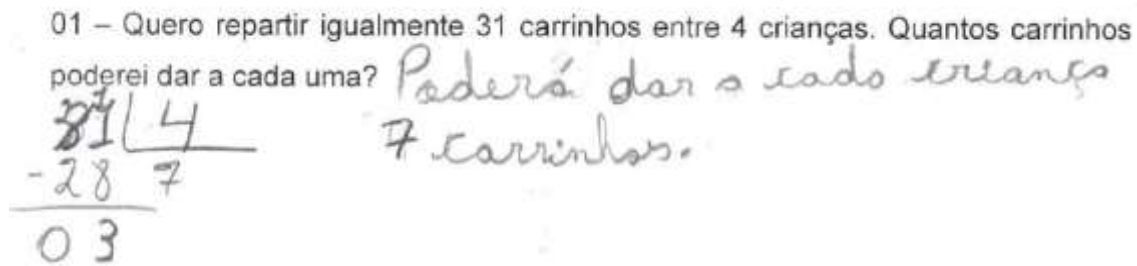 01 – Quero repartir igualmente 31 carrinhos entre 4 crianças. Quantos carrinhos
poderei dar a cada uma? Poderá dar a cada criança
7 carrinhos.
31 4
- 28 7
03